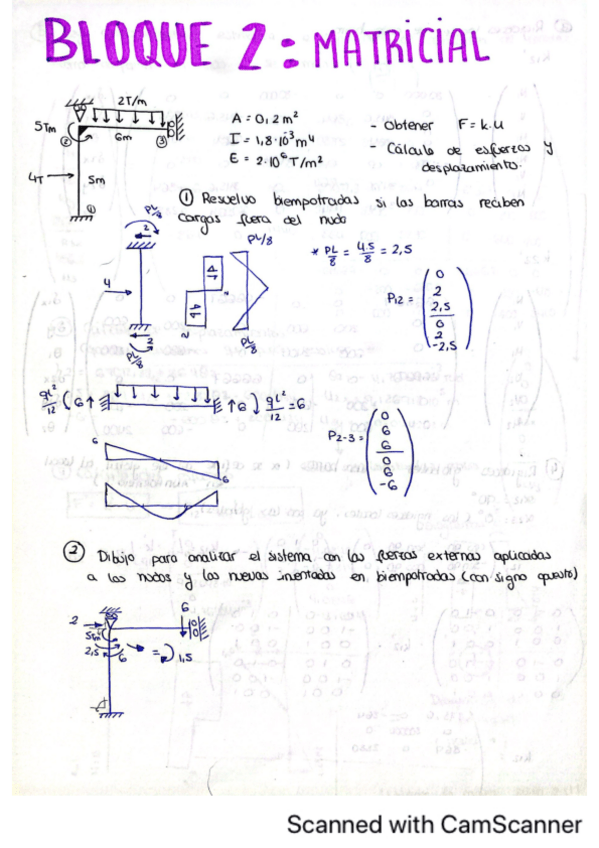 BLOQUE 2: MATRICIAL
2T/m
5Tm
②
6m
③
4T
5m
①
A = 0,2 m²
I = 1,8·10⁻³ m⁴
E = 2·10⁶ T/m²
- Obtener F = k.u
- Cálculo de esfuerzos y
desplazamiento.
① Resuelvo biempotradas si las barras reciben
cargas fuera del nudo
PL/8
2
4
2
PL/8
PL/8
PL/8
* PL/8 = 4.5/8 = 2,5
P₁₂ = (0 2 2,5 0 2 -2,5)
ql²/12 ( 6 ↑ ↑ 6 ) ql²/12 = 6
6
6
P₂₋₃ = (0 6 6 0 6 -6)
② Dibujo para analizar el sistema con las fuerzas externas aplicadas
a los nodos y las nuevas inventadas en biempotradas (con signo opuesto)
2
6
5Tm
2,5
6
= 1,5
Scanned with CamScanner